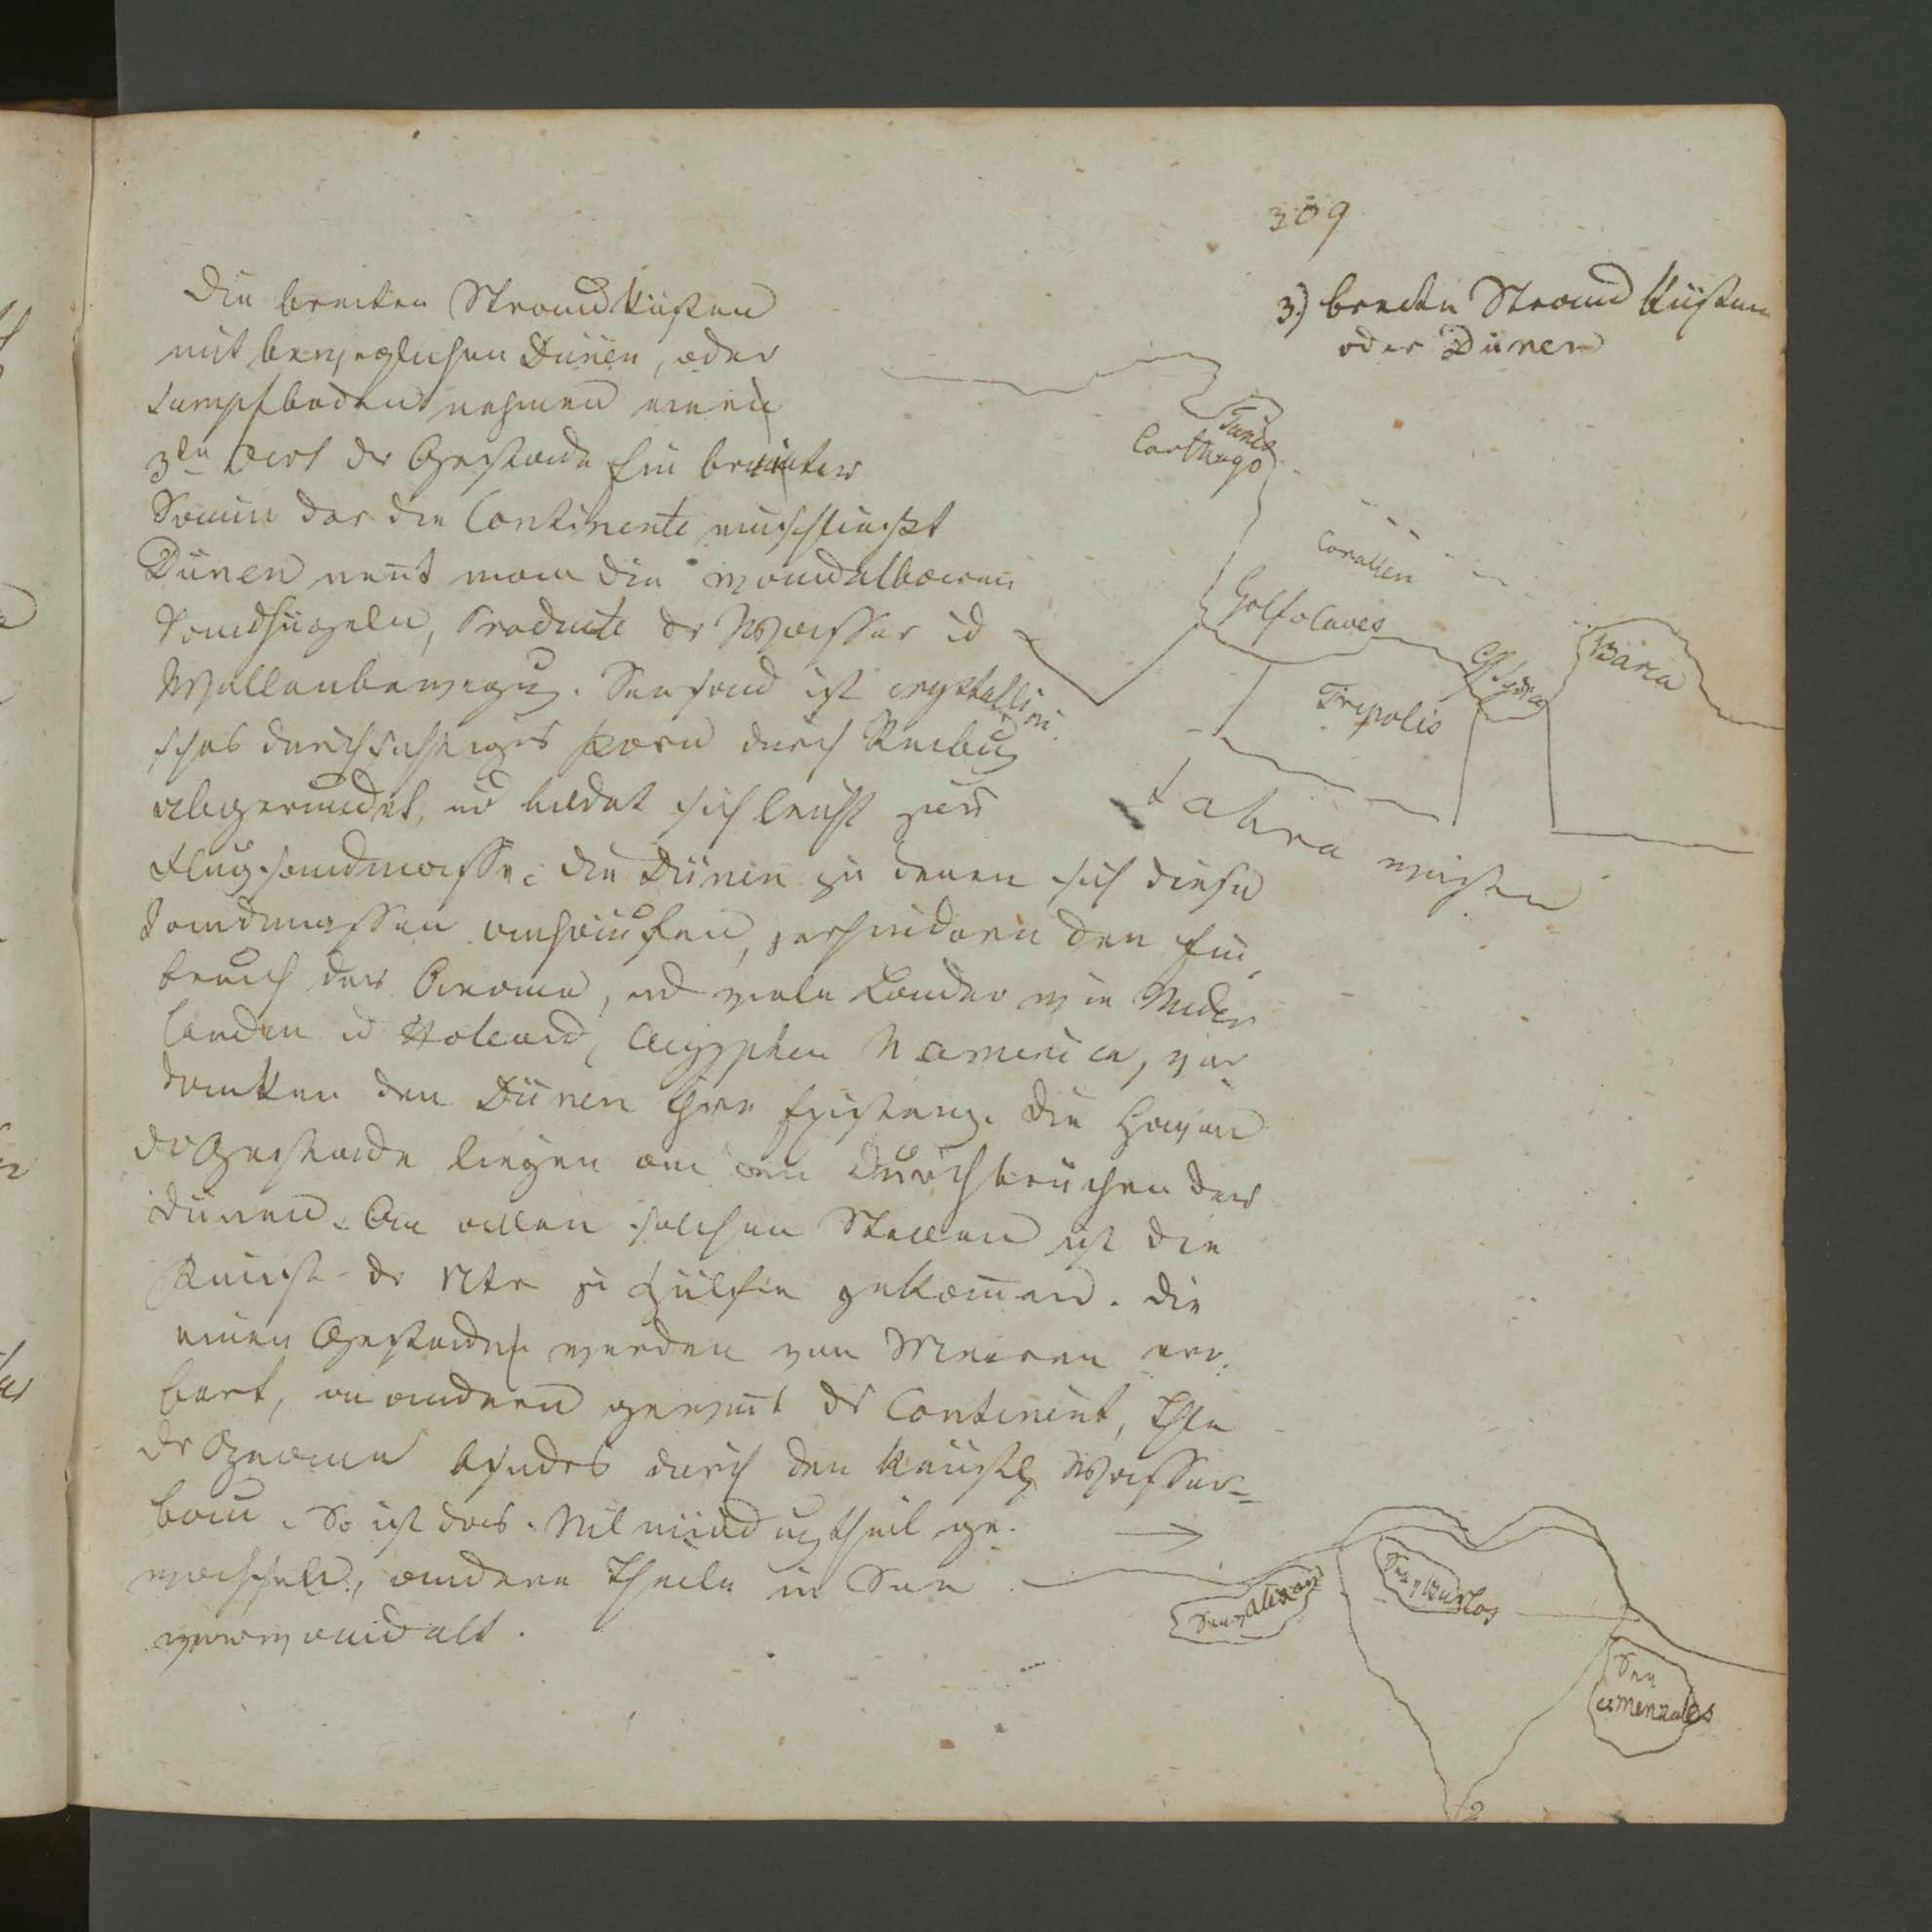 309
3.) breite Strand Küsten
oder Dünen
Die breiten Strandküsten
mit beweglichen Dünen, oder
Sumpfboden nehmen einen
3te Art der Gestade ein breiter
Saum der die Continente einschließt
Dünen nent man die wandelbaren
Sandhügeln, Producte der Wasser ud
Wellenbewegug. Seesand ist crystallini
sches durchsichtiges Korn durch Reibug
abgerundet, ud bildet sich leicht zur
Flugsandmasse; die Dünen zu denen sich diese
Sandmassen anhäufen, verhindern den Ein
bruch des Oceans, ud viele Länder wie Nieder
landen ud Holland, Aegypten N america, ver
danken den Dünen ihre Existenz. Die Haven
der Gestade liegen an den Durchbrüchen der
Dünen. An allen solchen Stellen ist die
Kunst der Ntr zu Hülfe gekommen. Die
einen Gestade werden von Meeren
, an andern gewint der Continent,
der Oceane durch den Wasser=
bau. So ist das Nilmündugtheil ge
wachsen, andere Theile in See
verwandelt.
Tunis
Carthago
Corallen
Golfo Caves
Tripolis
Barca
Sahra wüsten
See v Burlos
See
v menzales